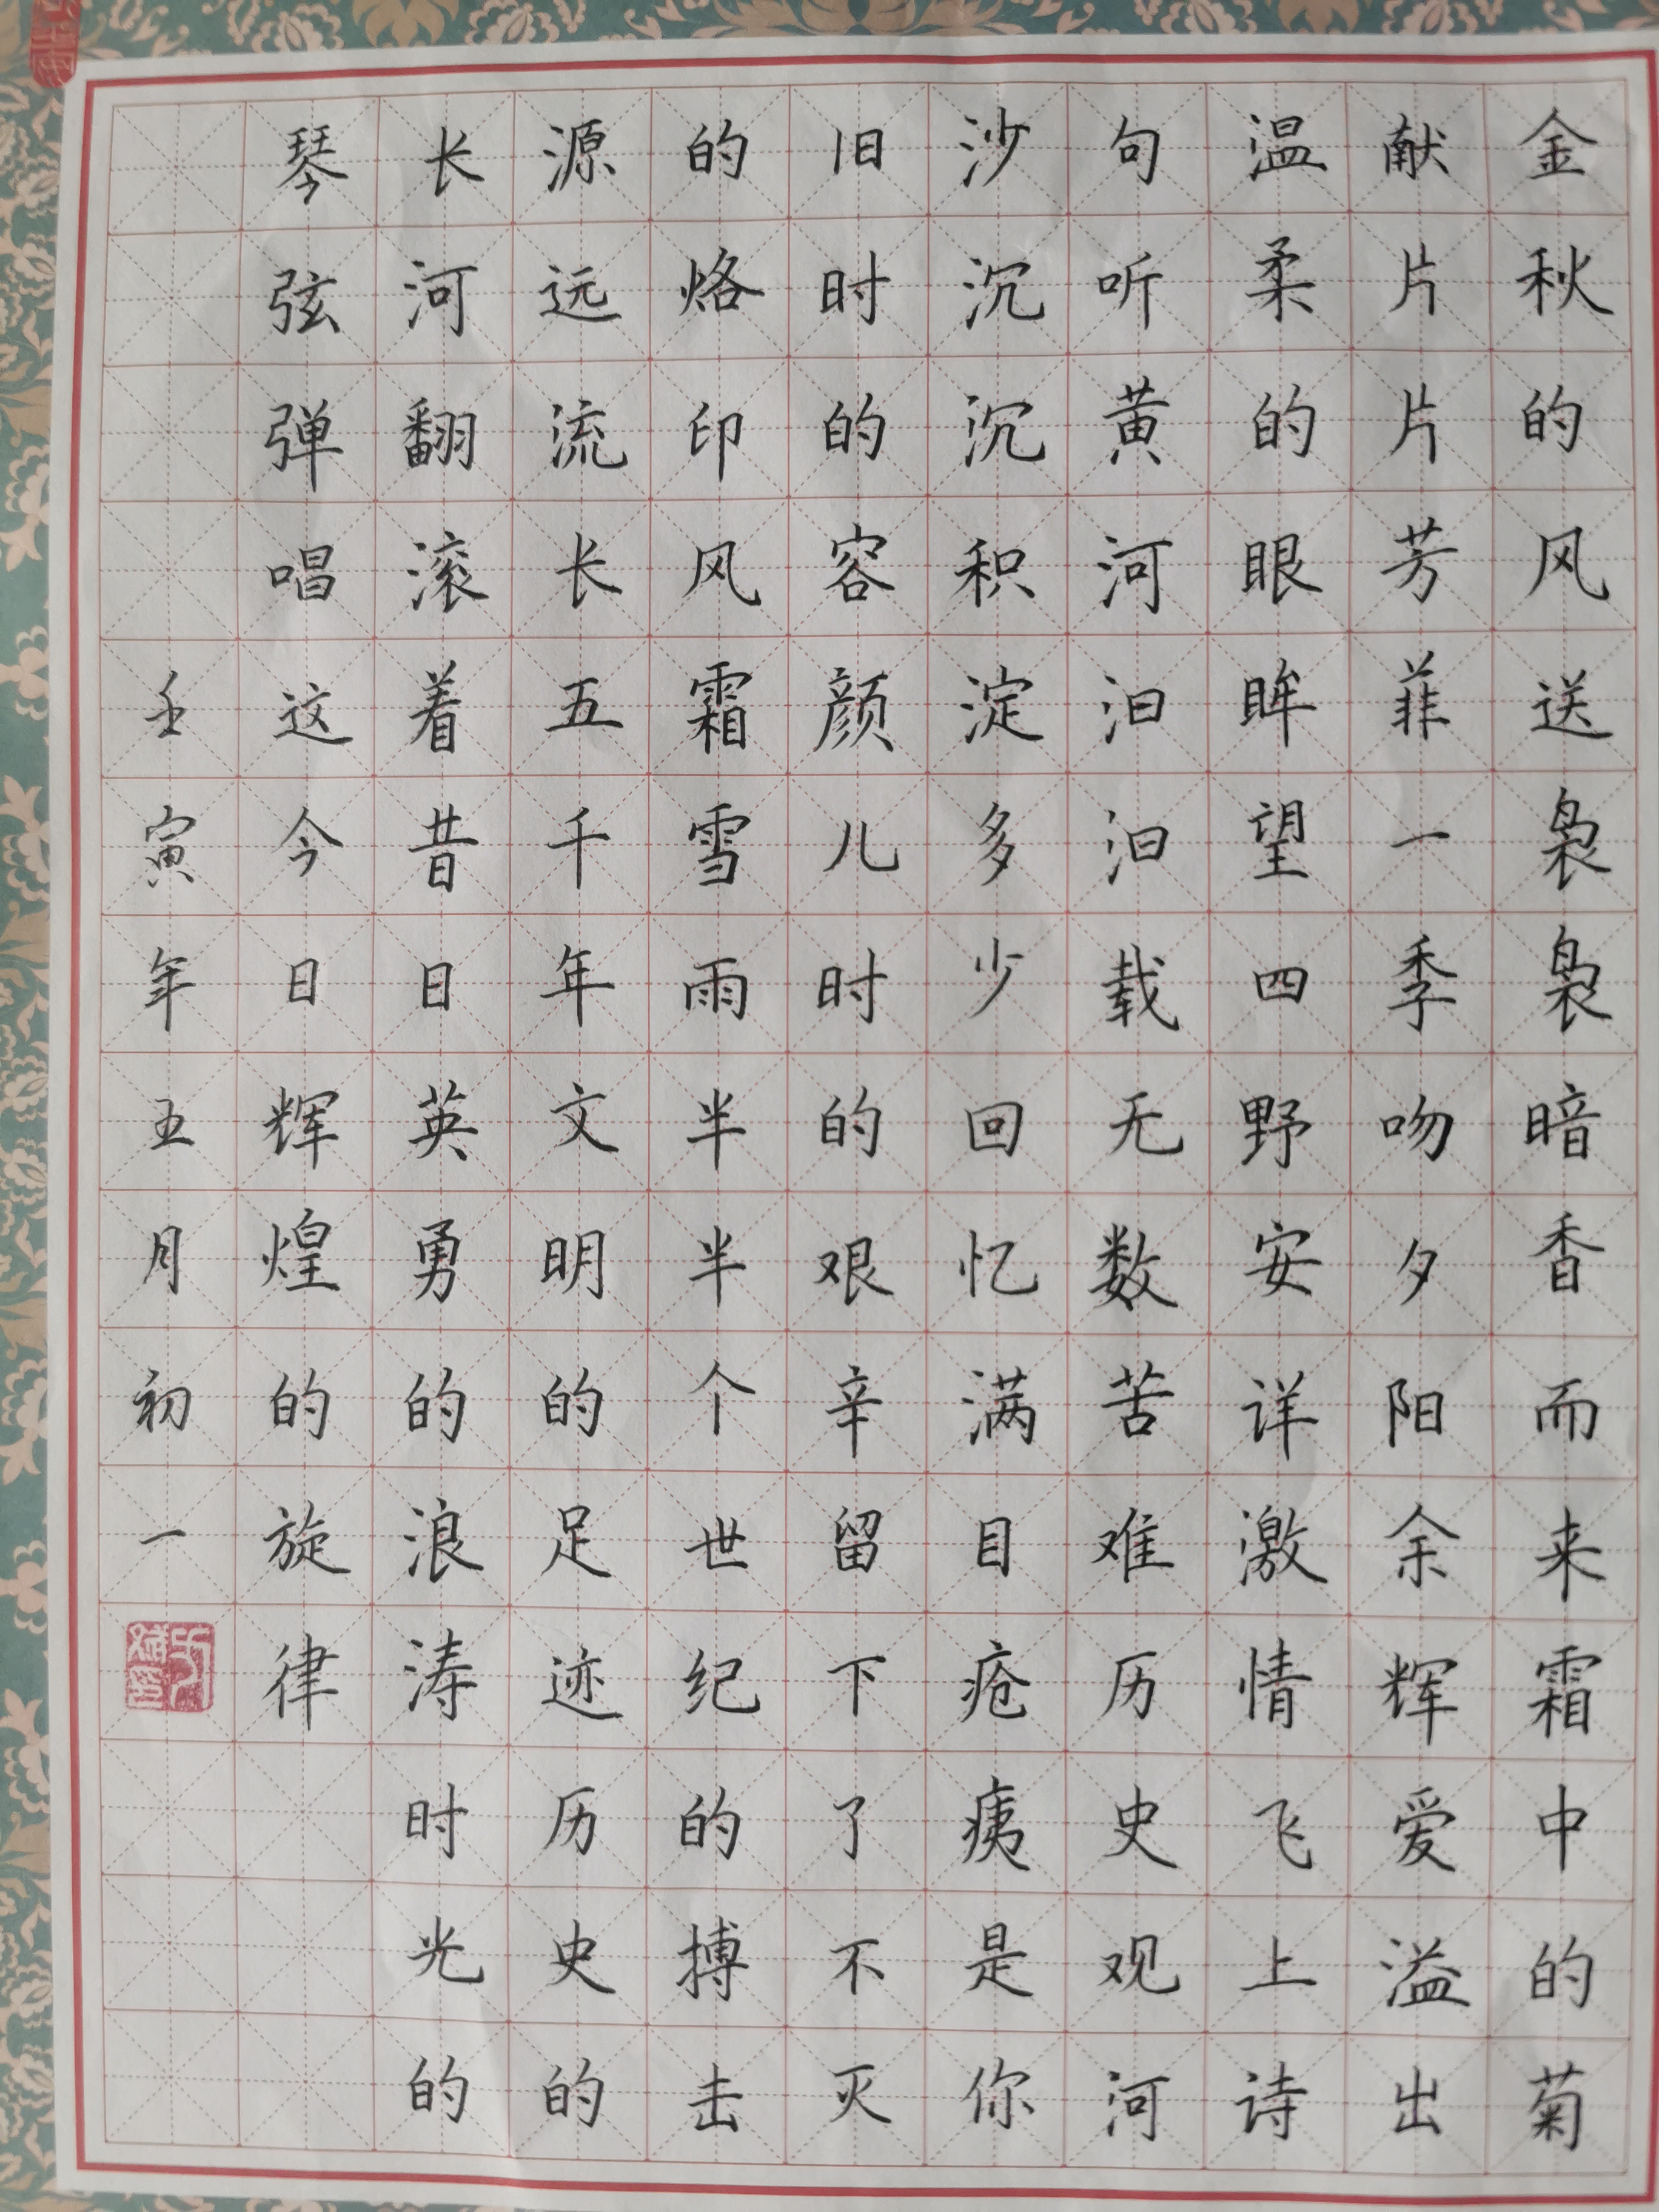 金秋的风送袅袅暗香而来霜中的菊
献片片芳菲一季吻夕阳余辉爱溢出
温柔的眼眸望四野安详激情飞上诗
句听黄河汩汩载无数苦难历史观河
沙沉沉积淀多少回忆满目疮痍是你
旧时的容颜儿时的艰辛留下了不灭
的烙印风霜雪雨半半个世纪的搏击
源远流长五千年文明的足迹历史的
长河翻滚着昔日英勇的浪涛时光的
琴弦弹唱这今日辉煌的旋律
壬寅年五月初一